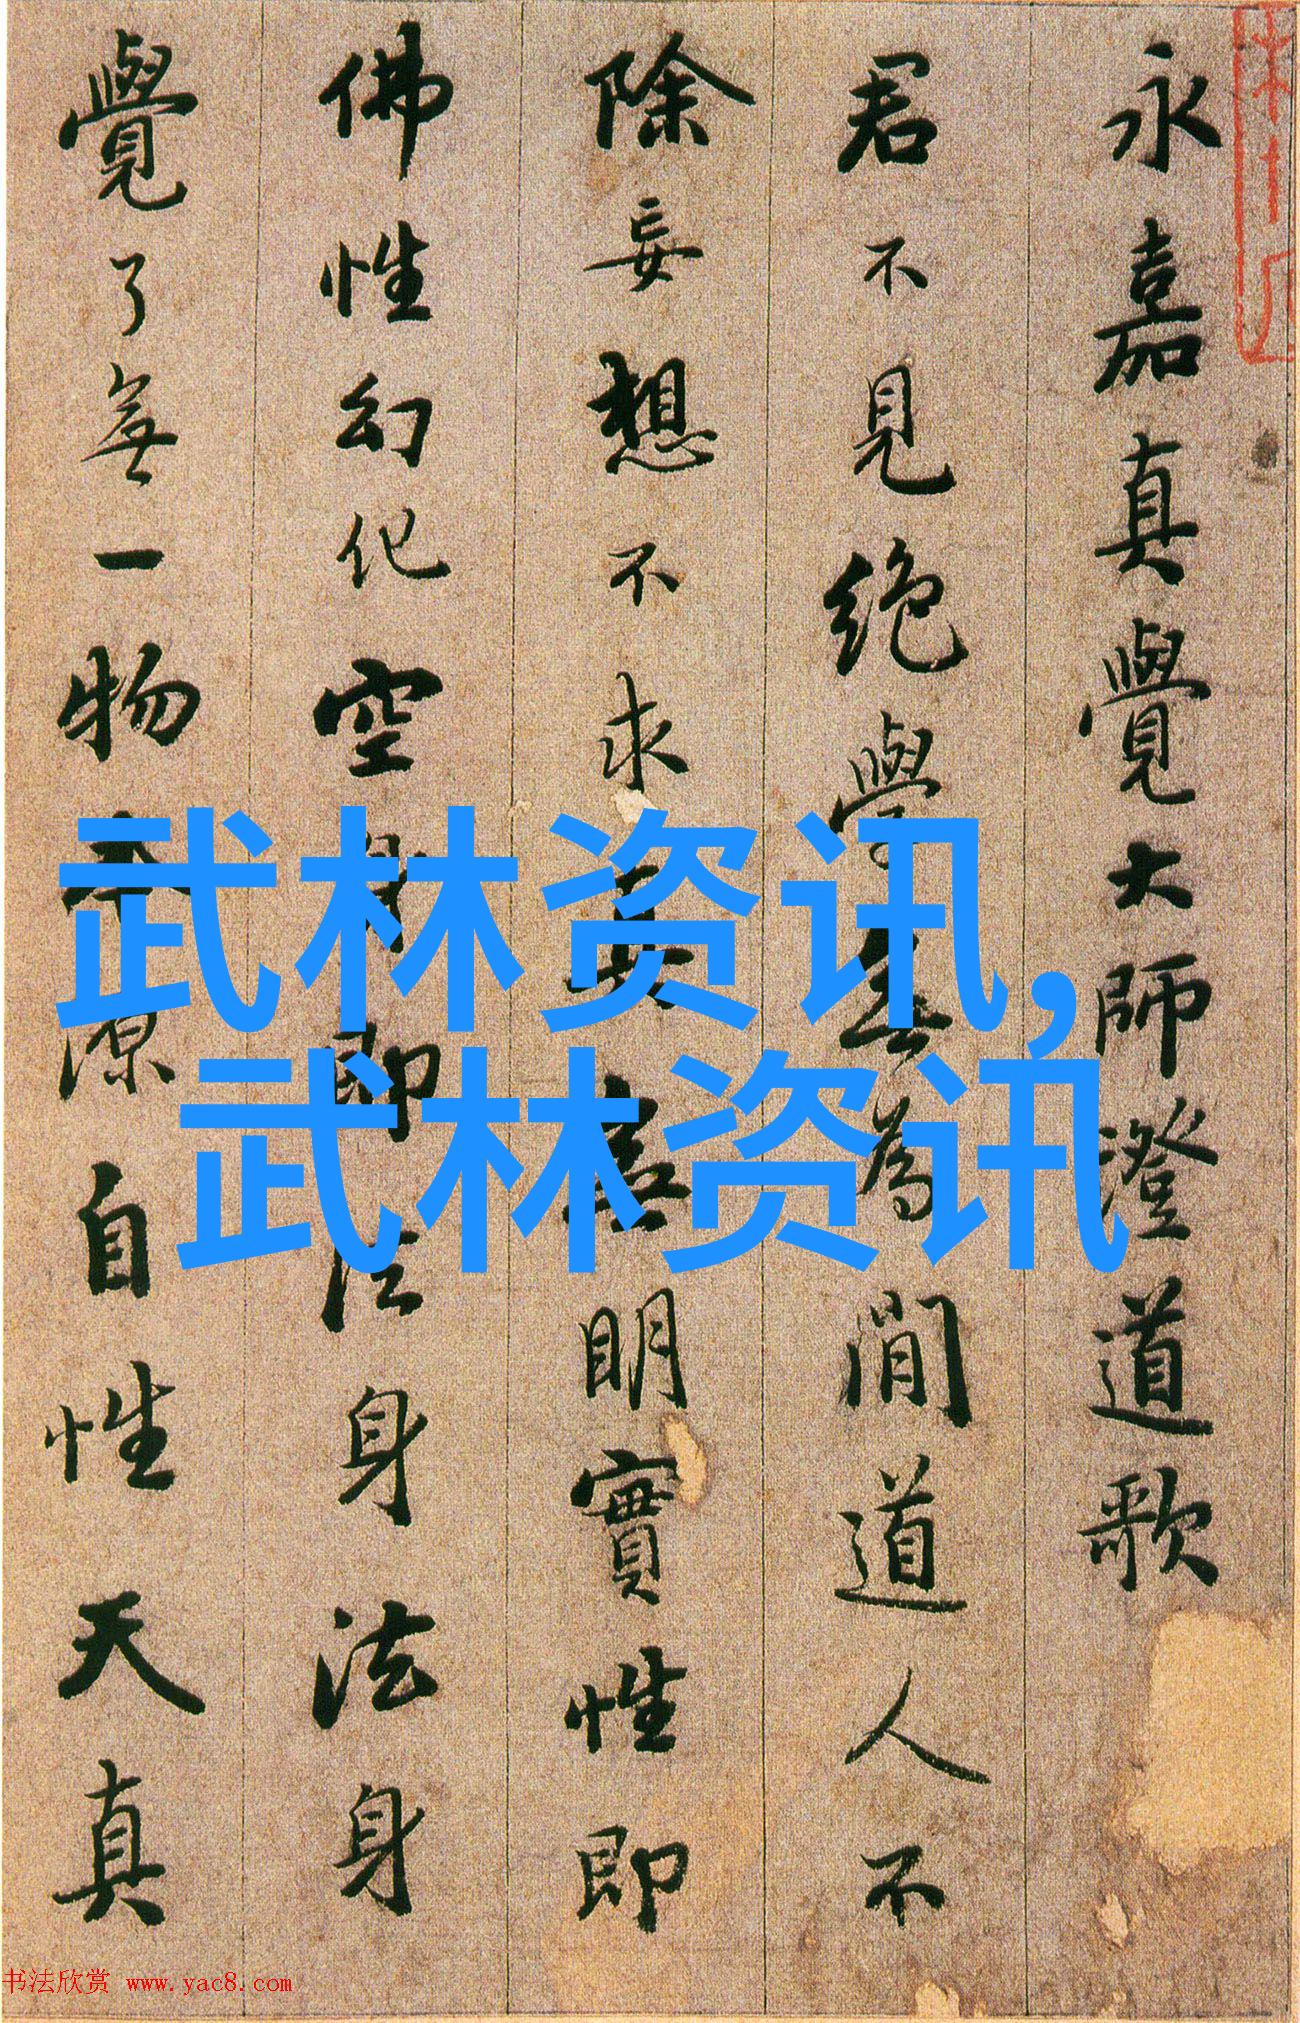 永嘉真覺大師澄道歌
君不見絶學無為閒道人不
除妄想不求真無明實性即
佛性幻化空身即法身法身
覺了無一物本源自性天真
武林资讯,
武林资讯
书法欣赏 www.yac8.com